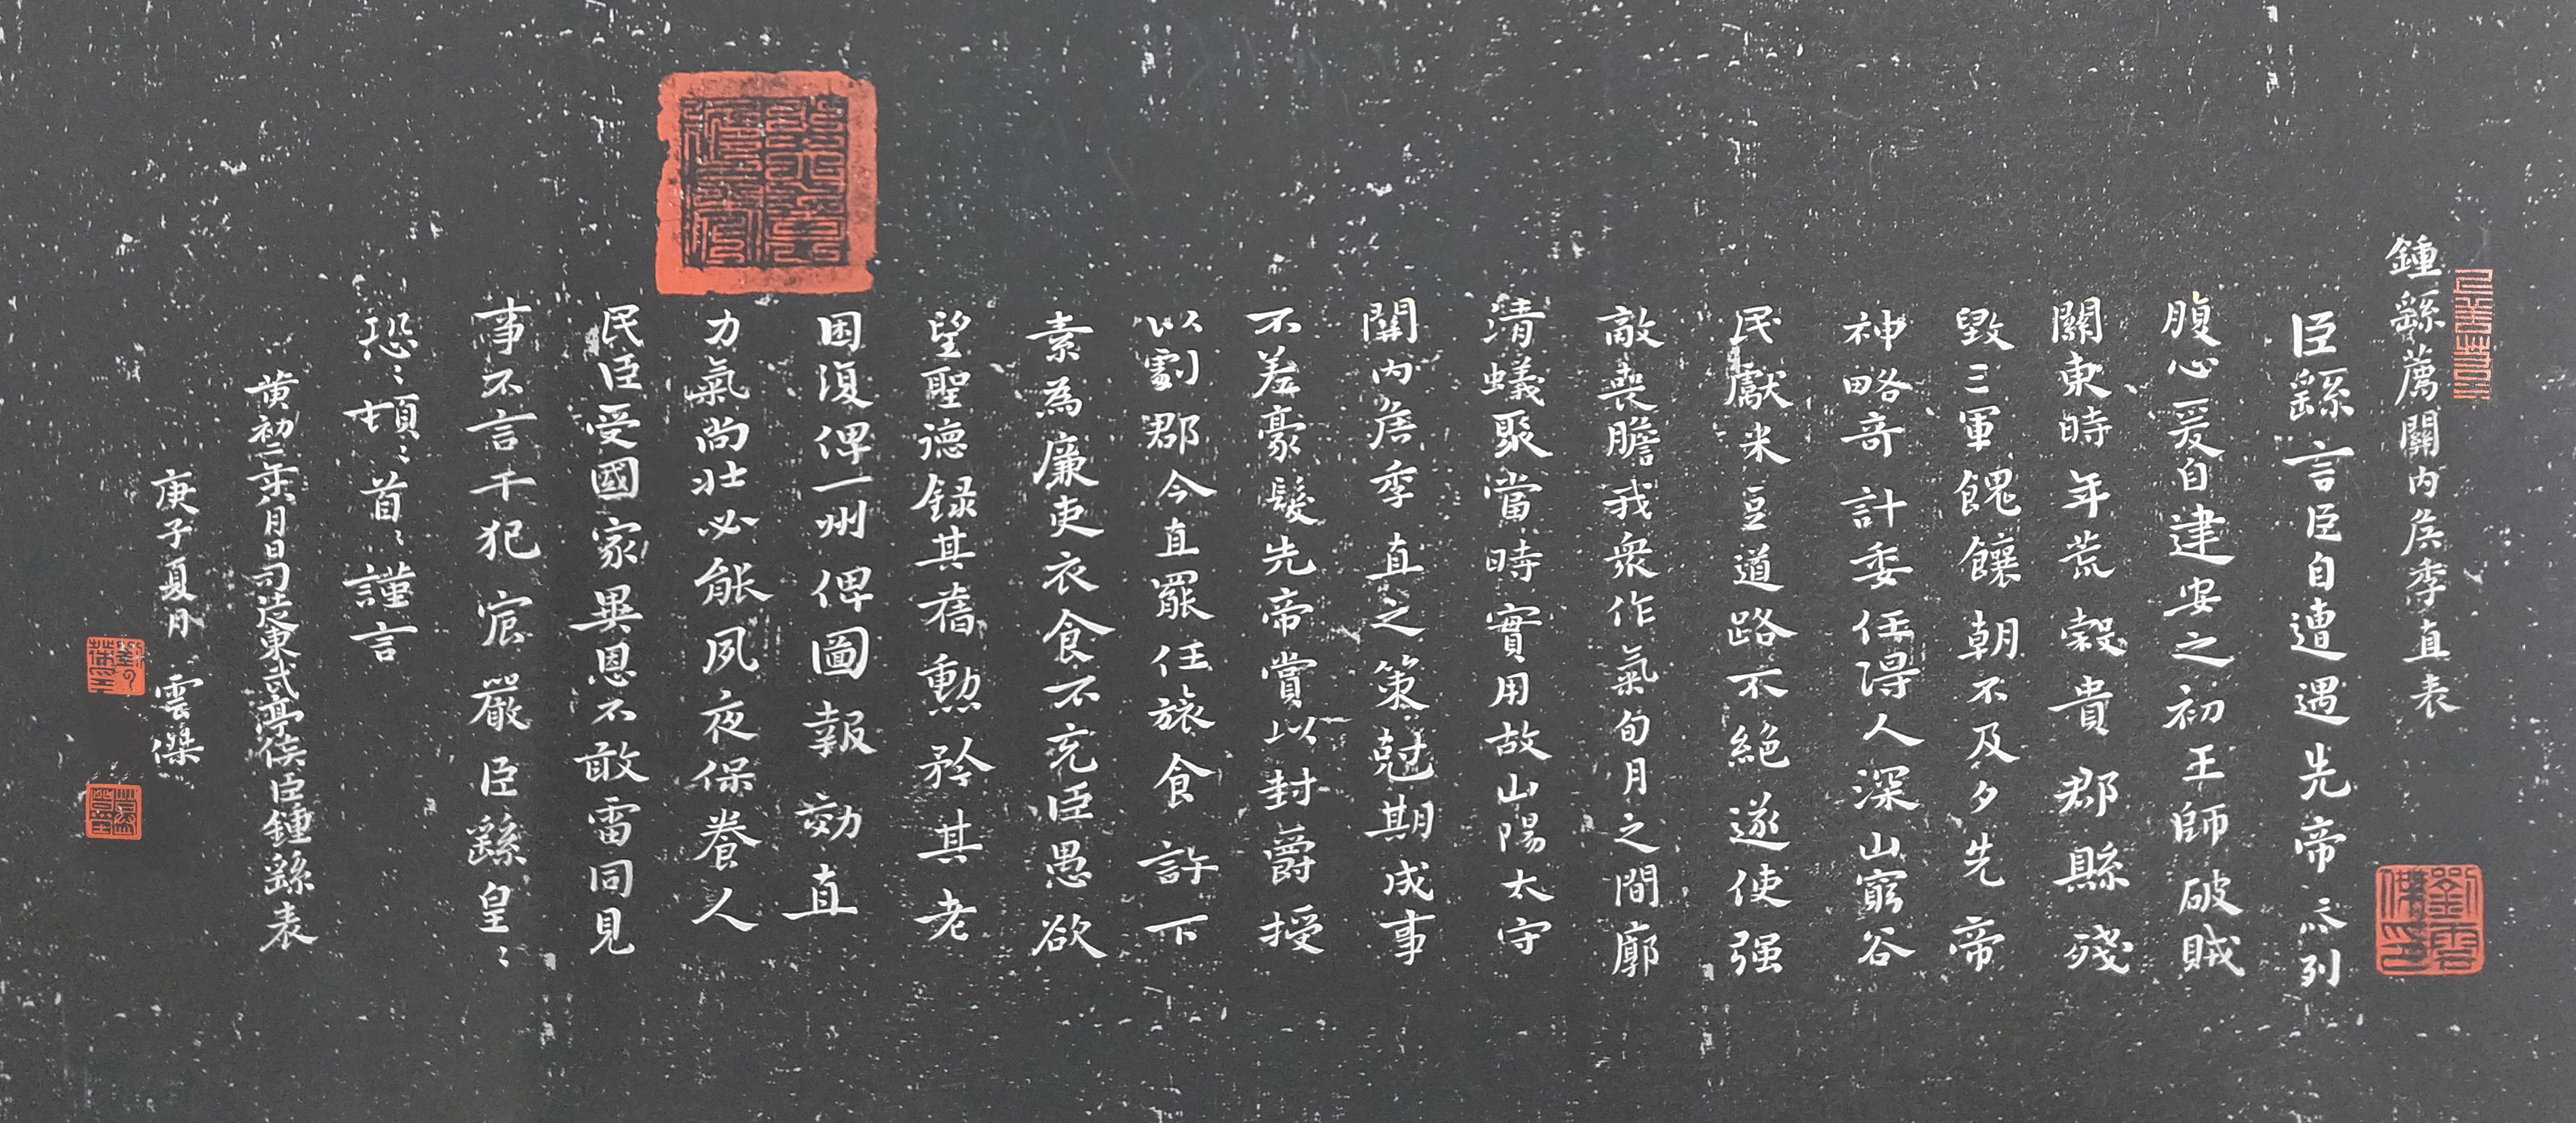 鍾繇薦關內侯季直表
臣繇言臣自遭遇先帝忝列
腹心爰自建安之初王師破賊
關東時年荒榖貴郡縣殘
毀三軍餽饟朝不及夕先帝
神略奇計委任得人深山窮谷
民獻米豆道路不絕遂使强
敵喪膽我衆作氣旬月之間廓
清蟻聚當時實用故山陽太守
關內侯季直之策尅期成事
不差豪髮先帝賞以封爵授
以劇郡今直罷任旅食許下
素為廉吏衣食不充臣愚欲
望聖德録其舊勳矜其老
困復俾一州俾圖報効直
力氣尚壯必能夙夜保養人
民臣受國家異恩不敢雷同見
事不言干犯宸嚴臣繇皇〻
恐〻頓〻首〻謹言
黃初二年八月日司徒東武亭侯臣鍾繇表
庚子夏月 雲傑
劉雲傑印